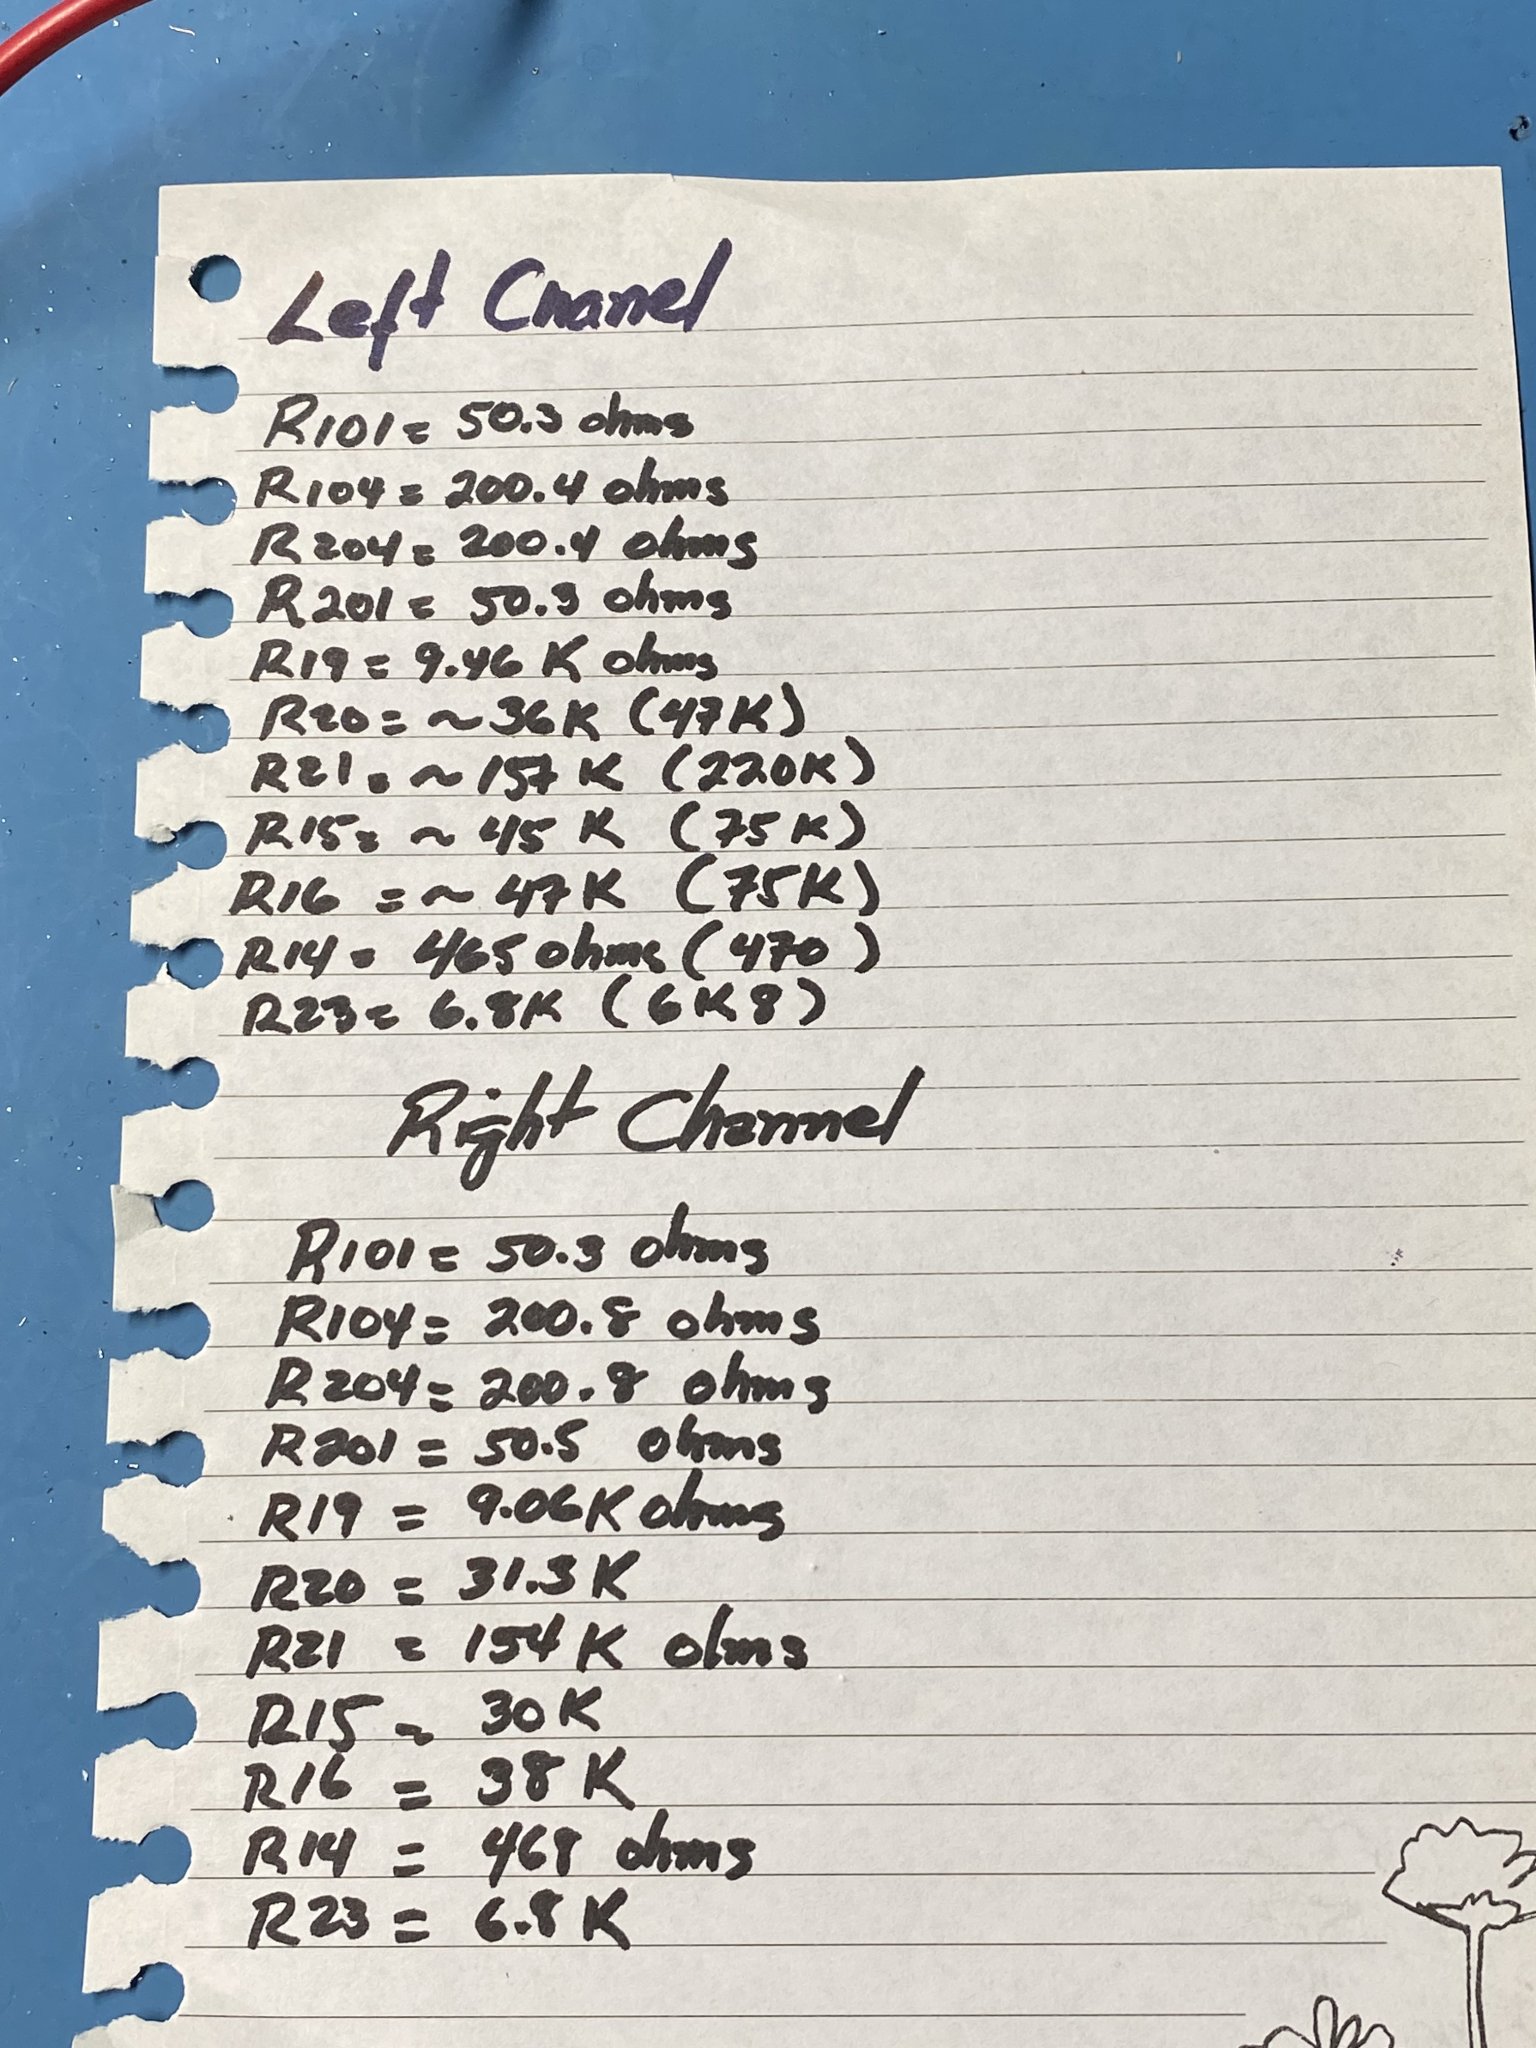 Left Chanel
R101 = 50.3 ohms
R104 = 200.4 ohms
R204 = 200.4 ohms
R201 = 50.3 ohms
R19 = 9.46 K ohms
R20 = ~36K (47K)
R21 = ~157K (220K)
R15 = ~45 K (75K)
R16 = ~47K (75K)
R14 = 465 ohms (470)
R23 = 6.8K (6K8)
Right Channel
R101 = 50.3 ohms
R104 = 200.8 ohms
R204 = 200.8 ohms
R201 = 50.5 ohms
R19 = 9.06K ohms
R20 = 31.3K
R21 = 154K ohms
R15 = 30K
R16 = 38K
R14 = 468 ohms
R23 = 6.8K